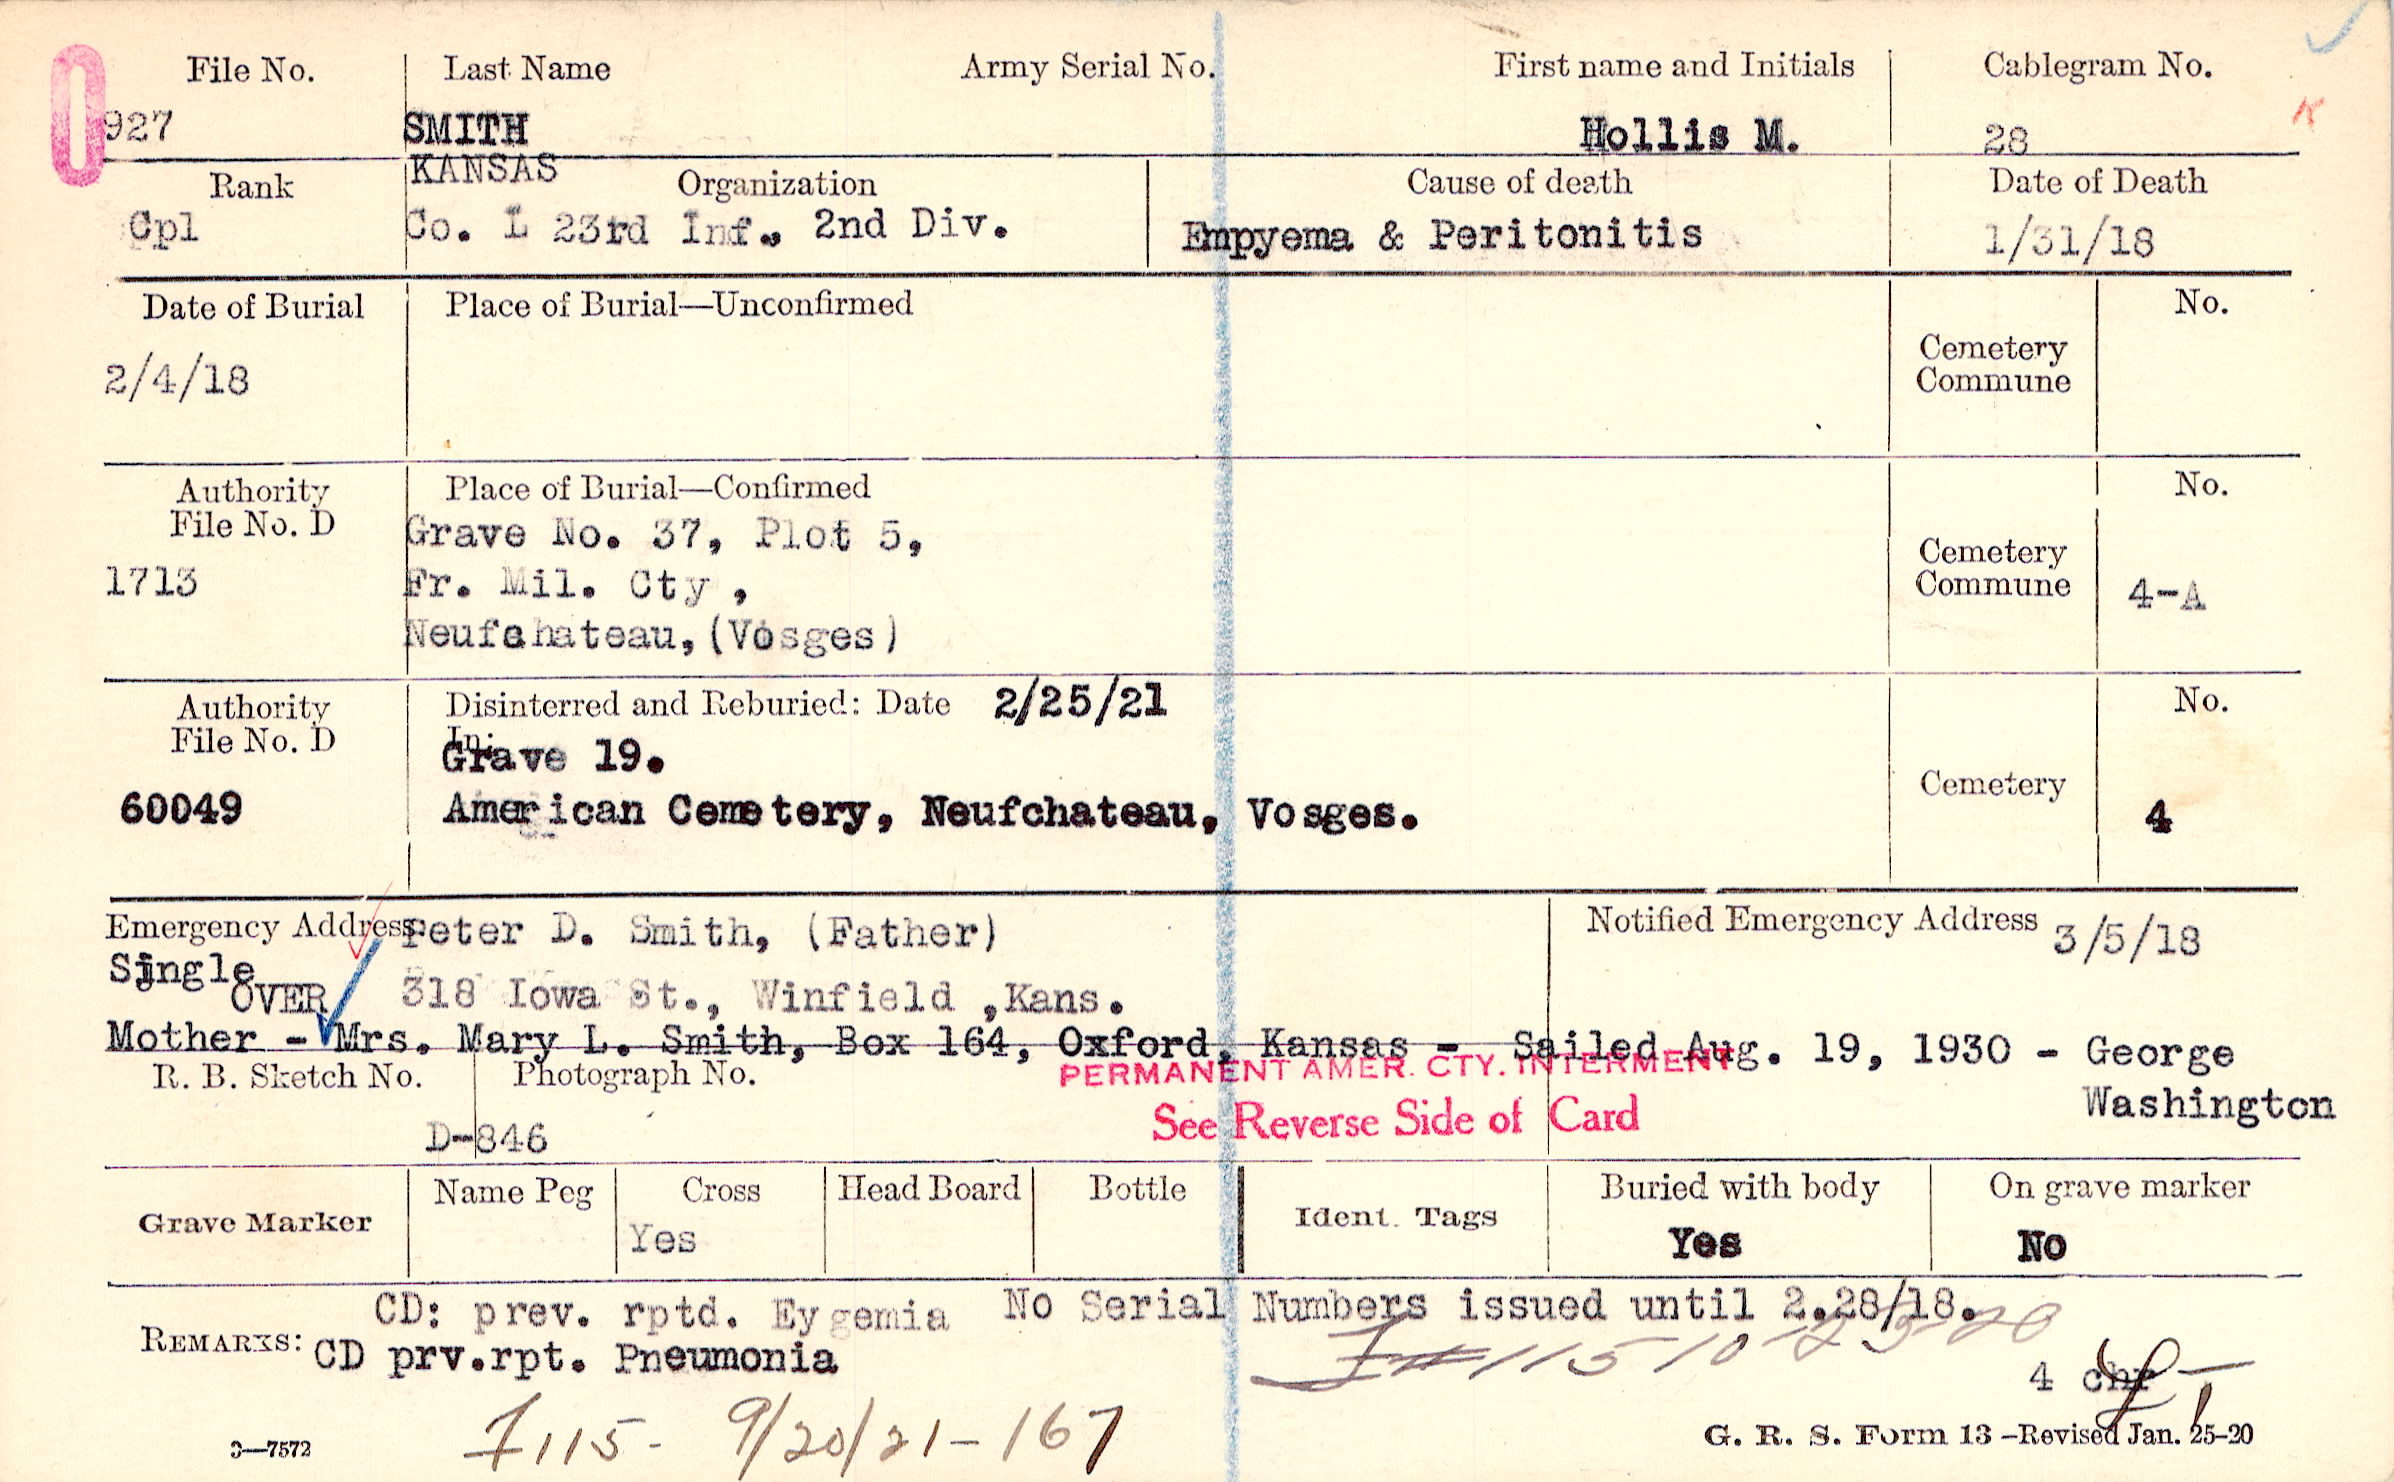 File No. Last Name Army Serial No. First name and Initials Cablegram No.
0 927 SMITH Hollis M. 28
K
KANSAS
Rank Organization Cause of death Date of Death
Cpl Co. L 23rd Inf., 2nd Div. Empyema & Peritonitis 1/31/18
Date of Burial Place of Burial—Unconfirmed No.
2/4/18
Cemetery
Commune
Authority Place of Burial—Confirmed No.
File No. D Grave No. 37, Plot 5,
1713 Fr. Mil. Cty , Cemetery
Commune 4-A
Neufchateau,(Vosges)
Authority Disinterred and Reburied: Date 2/25/21 No.
File No. D In:
Grave 19.
Cemetery
60049 American Cemetery, Neufchateau, Vosges. 4
Emergency Address Peter D. Smith, (Father) Notified Emergency Address 3/5/18
Single
OVER 318 Iowa St., Winfield ,Kans.
Mother - Mrs. Mary L. Smith, Box 164, Oxford, Kansas - Sailed Aug. 19, 1930 - George
Washington
R. B. Sketch No. Photograph No. PERMANENT AMER. CTY. INTERMENT
See Reverse Side of Card
D-846
Grave Marker Name Peg Cross Head Board Bottle Ident. Tags Buried with body On grave marker
Yes Yes No
CD: prev. rptd. Eygemia No Serial Numbers issued until 2.28/18.
REMARKS: CD prv.rpt. Pneumonia
115 10-23-20
4 chr
115- 9/20/21-167
3—7572 G. R. S. Form 13 –Revised Jan. 25-20